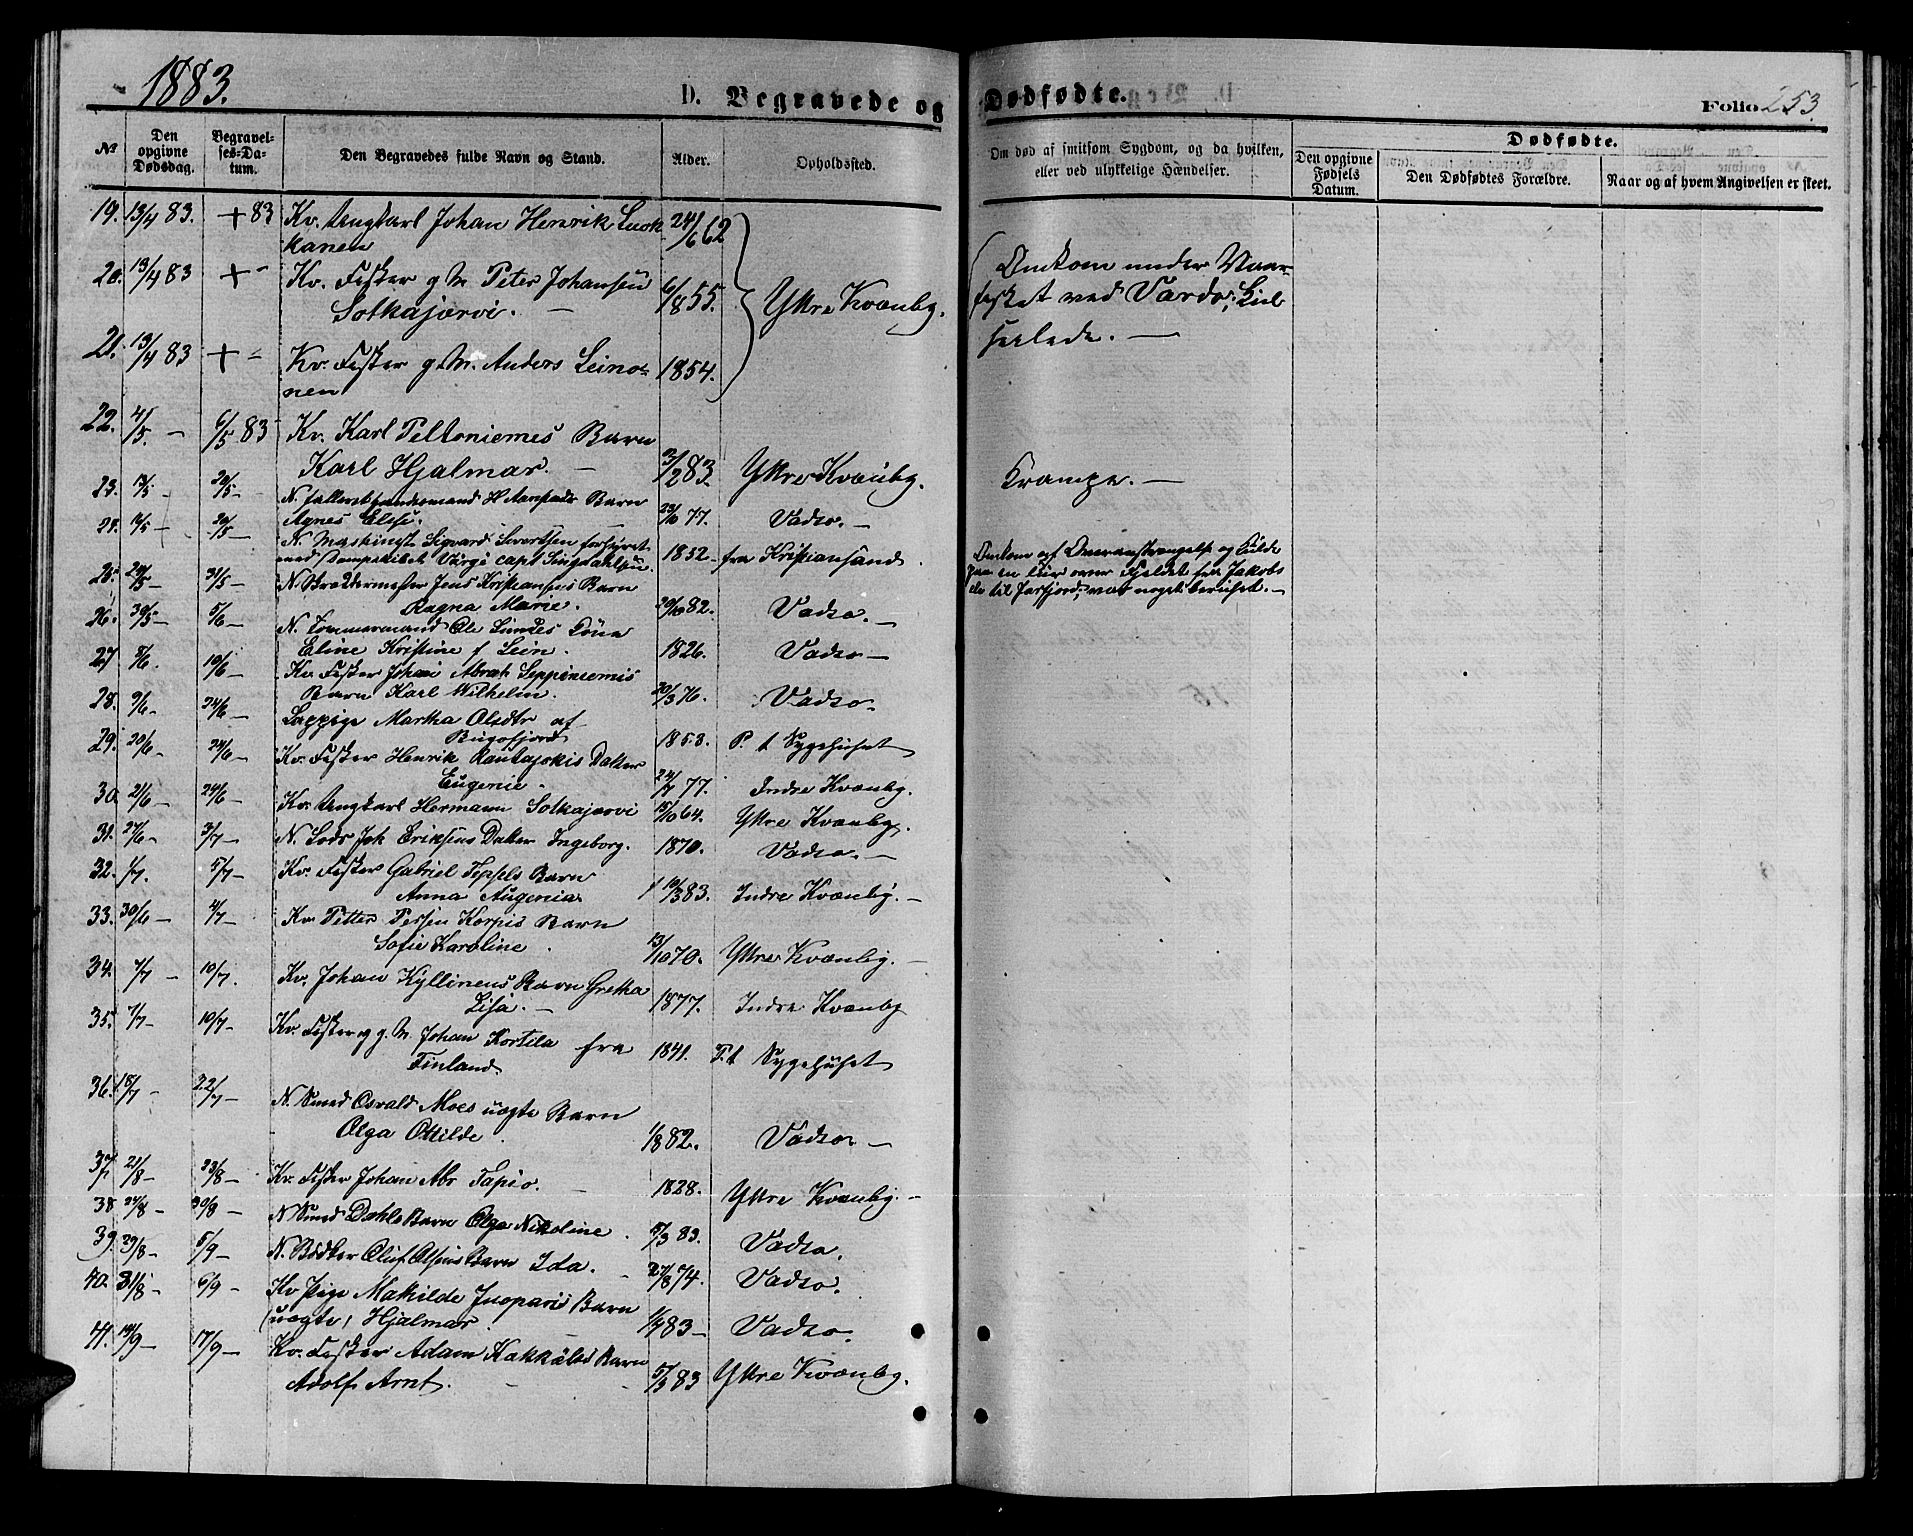 1883.
D. Begravede og Dødfødte.
Folio 253.
No
Den opgivne Dødsdag.
Begravelses-Datum.
Den Begravedes fulde Navn og Stand.
Alder.
Opholdssted.
Om død af smitsom Sygdom, og da hvilken, eller ved ulykkelige Hændelser.
Dødfødte.
Den opgivne Fødsels Datum.
Den Dødfødtes Forældre.
Naar og af hvem Angivelsen er skeet.
19. 13/4 83. + 83 Kv. Ungkarl Johan Henrik Luok
kanen 24/6 62
20. 13/4 83 + - Kv. Fisker g M Peter Johansen
Sotkajærvi. - 6/8 55. Yttre Kvænby.
Omkom under Vaar-
fisket ved Vardø; Kul
seilede. -
21. 13/4 83 + - Kv. Fisker g M. Anders Leino-
nen 1854.
22. 4/5. - 6/5 83 Kv. Karl Peltoniemes Barn
Karl Hjalmar. - 3/2 83. Yttre Kvænby. Krampe. -
23. 13/5 - 20/5 - N. Barn
Agnes Elise. 23/10 77. Vadsø. -
24. 16/5 - 20/5 - N. Maskinist Sigvard Sivertsen forhyret
med Dampskibet Værge capt 1852 - fra Kristiansand.
Omkom af Overanstrængelse og Kulde
paa en Tur over Fjeldet fra Jakobs
elv til Jarfjord; var noget beruset. -
25. 28/5 - 31/5 - N. Skræddermester Jens Kristiansens Barn
Ragna Marie. 20/10 82. Vadsø. -
26. 30/5 - 5/6 - N. Tømmermand Ole Kone
Eline Kristine f Lein. 1826. Vadsø -
27 5/6. 10/6 - Kv. Fisker Johan Abrah Seppiniemis
Barn Karl Wilhelm. 20/3 76. Vadsø.
28. 9/6 - 24/6 - Lappige Martha Olsdtr af
Bugøfjord 1853. P. t Sygehuset
29. 20/6 - 24/6 - Kv. Fisker Henrik Rantajokis Datter
Eugenie. 24/7 77. Indre Kvænby.
30. 21/6 - 24/6 - Kv. Ungkarl Hermann Sotkajærvi 15/10 64. Yttre Kvænby.
31. 27/6 - 3/7 - N. Lods Joh Eriksens Datter Ingeborg. 1870. Vadsø. -
32. 1/7. 5/7 - Kv. Fisker Gabriel Barn
Anna Augenia 10/3 83. Indre Kvænby. -
33. 30/6 - 4/7 - Kv. Petter Persen Korpis Barn
Sofie Karoline. 13/10 70. Yttre Kvænby. -
34. 7/7 - 10/7. Kv. Johan Kyllinens Barn Gretha
Lisa. - 1877. Indre Kvænby
35. 7/7 - 10/7 - Kv. Fisker og g. M. Johan Kortila fra
Finland. 1841. P. t Sygehuset
36. 18/7 - 22/7 - N. Smed Osvald Moes uægte Barn
Olga Otilde. 1/8 82. Vadsø -
37. 21/8 - 23/8 - Kv. Fisker Johan Abr Tapio. - 1828. Yttre Kvænby. -
38. 24/8 - 30/8 - N Smed Dahls Barn Olga Nikoline. 5/3 83. Vadsø.
39. 29/8 - 5/9 - N. Bødker Oluf Olsens Barn Ida. - 27/8 74. Vadsø.
40. 31/8 - 6/9 - Kv Pige Mathilde Barn
(uægte) Hjalmar. 1/7 83 - Vadsø.
41. 14/9 - 17/9 - Kv. Fisker Adam Barn
Adolf Arnt. - 5/3 83 Yttre Kvænby.